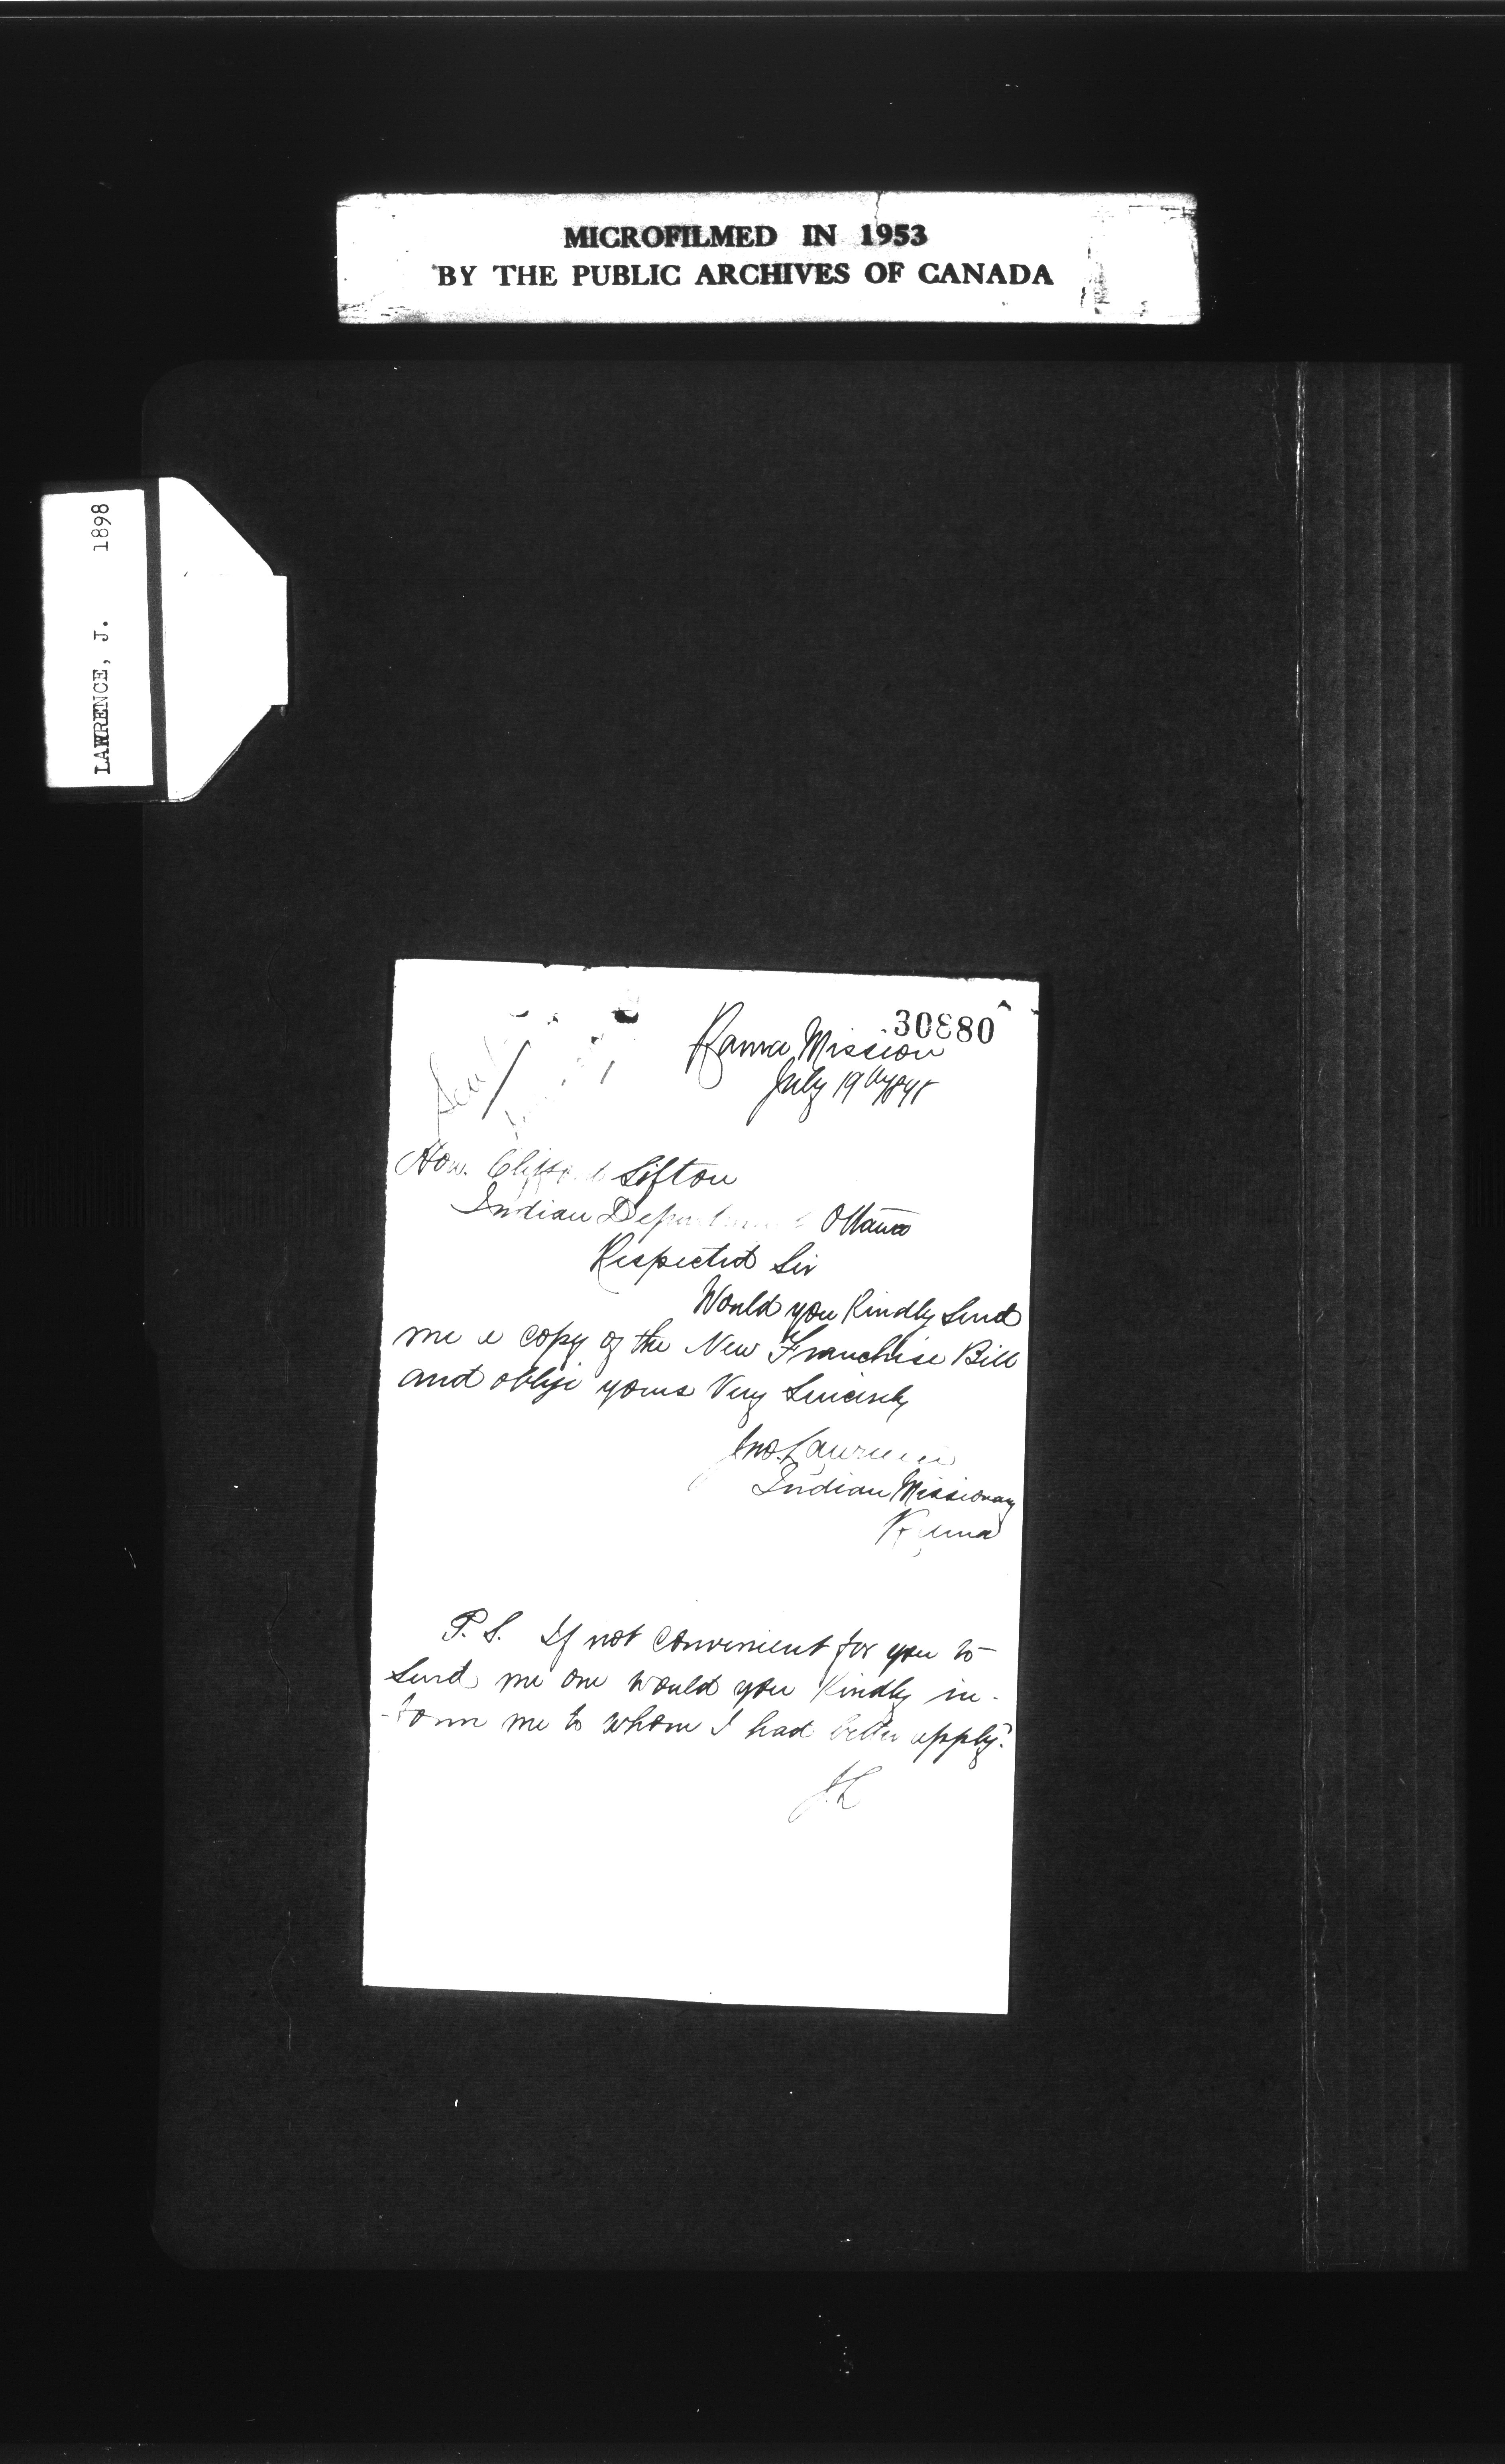 MICROFILMED IN 1953
BY THE PUBLIC ARCHIVES OF CANADA
LAWRENCE, J. 1898
30880
Rama Mission
July 19th/98
Sent
Hon. Clifford Sifton
Indian Department Ottawa
Respected Sir
Would you Kindly Send
me a copy of the New Franchise Bill
and oblige yours Very Sincerely
Jno. Lawrence
Indian Missionary
Rama
P.S. If not convenient for you to
Send me one would you Kindly in-
-form me to whom I had better apply?
J.L